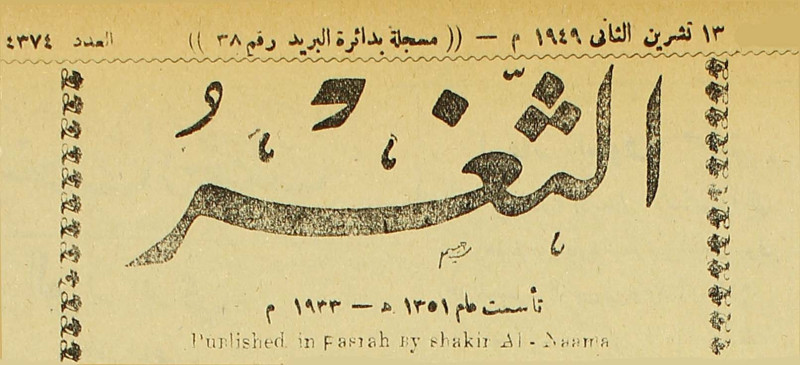 ١٣ تشرين الثانى ١٩٤٩ م — (( مسجلة بدائرة البريد رقم ٣٨ )) العدد ٤٣٧٤
الثَّغْرُ
تأسست عام ١٣٥١ هـ — ١٩٣٣ م
Published in Basrah By shakir Al-Naama